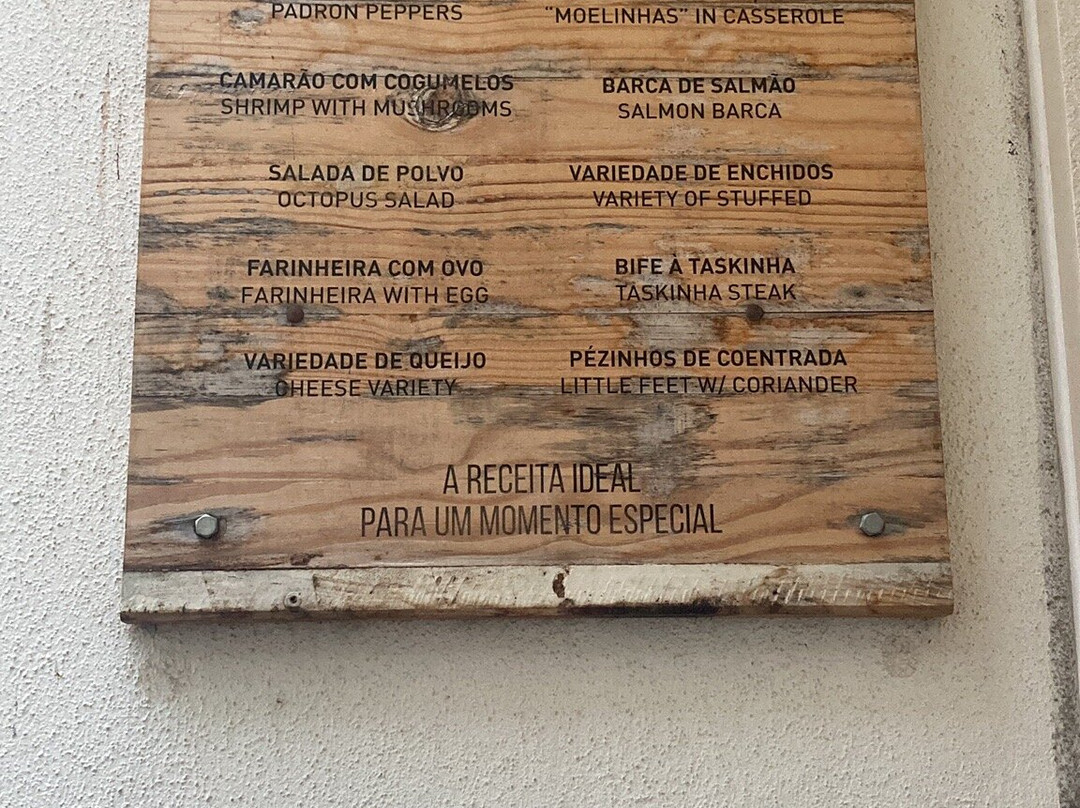 PADRON PEPPERS
"MOELINHAS" IN CASSEROLE
CAMARÃO COM COGUMELOS
SHRIMP WITH MUSHROOMS
BARCA DE SALMÃO
SALMON BARCA
SALADA DE POLVO
OCTOPUS SALAD
VARIEDADE DE ENCHIDOS
VARIETY OF STUFFED
FARINHEIRA COM OVO
FARINHEIRA WITH EGG
BIFE À TASKINHA
TASKINHA STEAK
VARIEDADE DE QUEIJO
CHEESE VARIETY
PÉZINHOS DE COENTRADA
LITTLE FEET W/ CORIANDER
A RECEITA IDEAL
PARA UM MOMENTO ESPECIAL